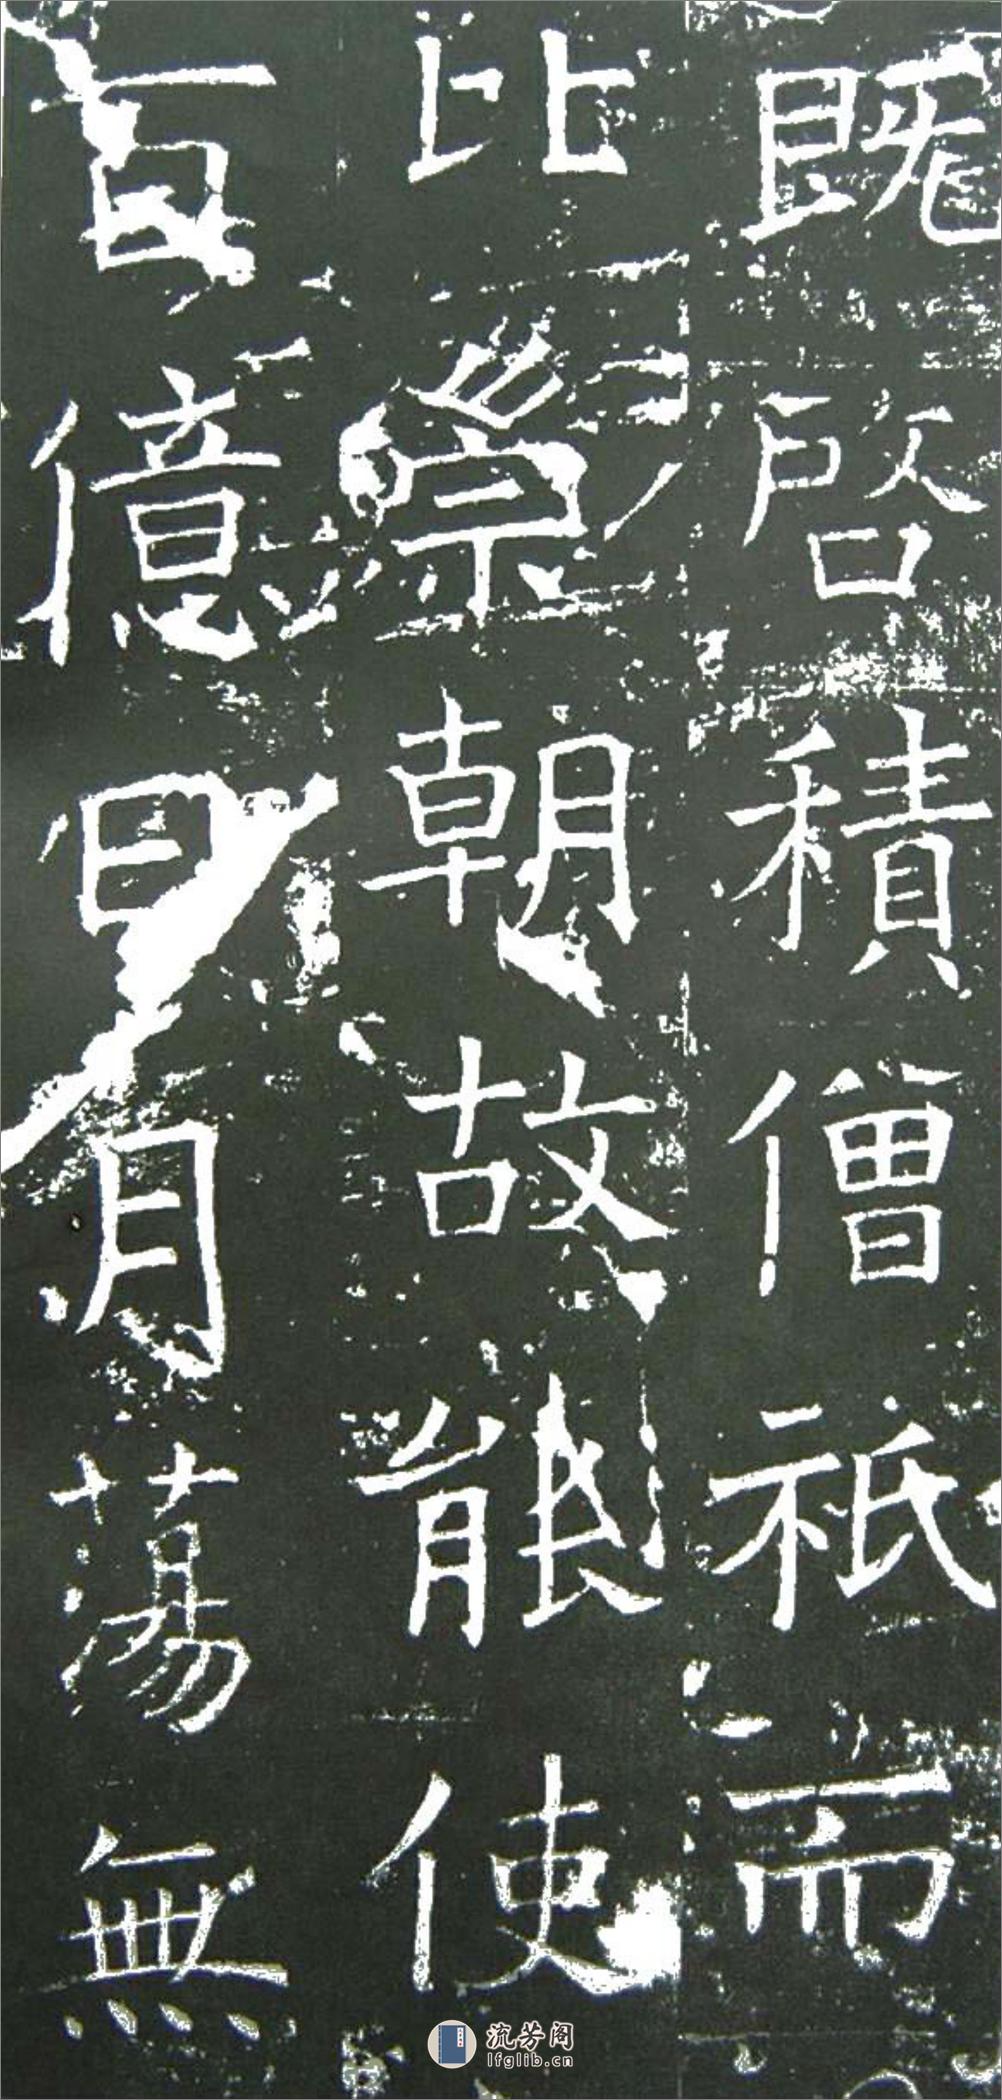 既啓積僧祇而
比崇朝故能使
百億日月蕩無
流芳阁
lfglib.cn